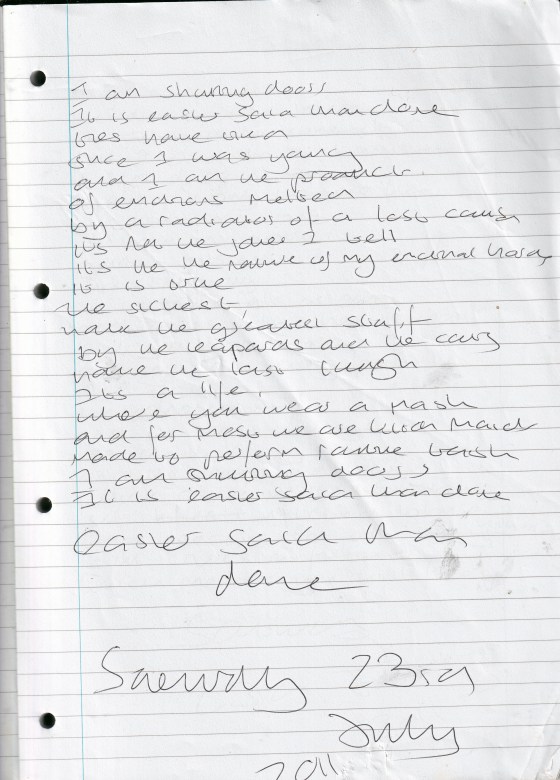 I am shutting doors
It is easier said than done
ties have died
since I was young
and I am the product
of endians melted
by a radiator of a last cause
its not the jokes I tell
its the the nature of my eternal
it is true
the sickest,
have the greatest stuff
by the leopards and the cows
have the last laugh
Its a life,
where you wear a mask
and for most we are kitchen maids
made to perform routine task
I am shutting doors,
It is easier said than done
easier said than
done
Saturday 23rd
July
2011